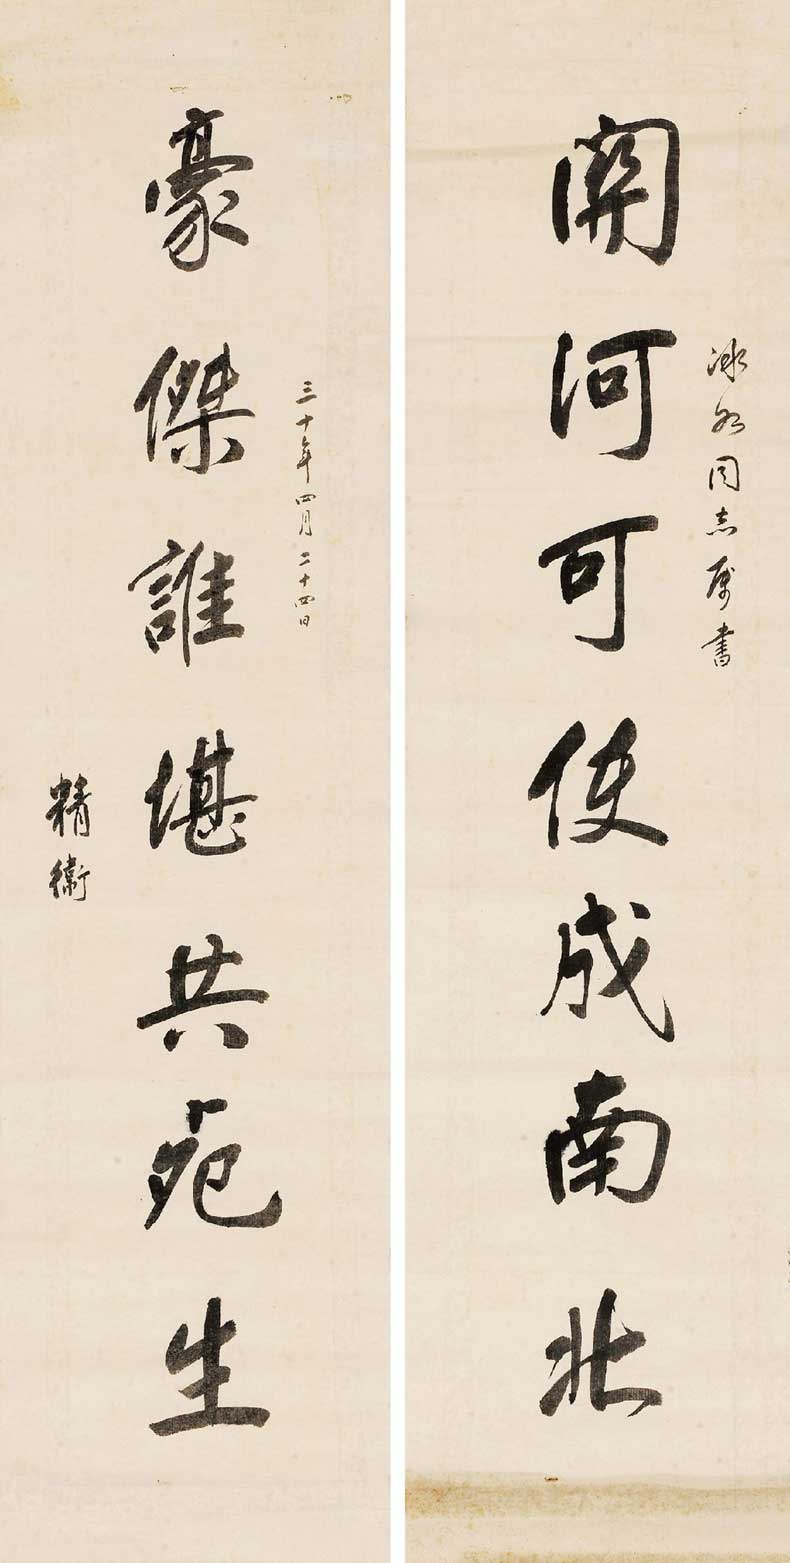 冰如同志属書
關河可使成南北
三十年四月二十四日
豪傑誰堪共死生
精衛